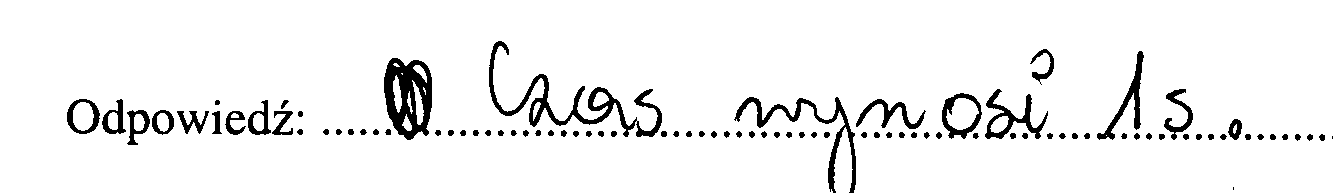 Odpowiedź: Czas wynosi 1s.